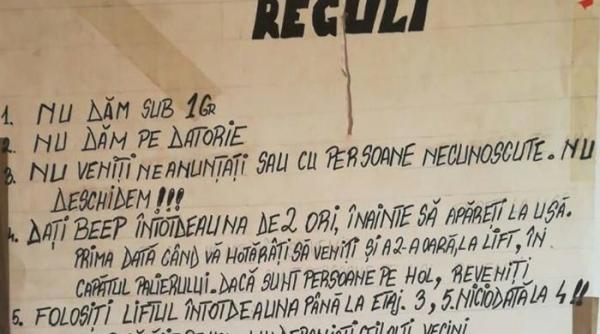 REGULI
1. NU DĂM SUB 1GR
2. NU DĂM PE DATORIE
3. NU VENIȚI NEANUNȚAȚI SAU CU PERSOANE NECUNOSCUTE. NU
DESCHIDEM!!!
4. DAȚI BEEP ÎNTOTDEAUNA DE 2 ORI, ÎNAINTE SĂ APĂREȚI LA UȘĂ.
PRIMA DATĂ CÂND VĂ HOTĂRÂȚI SĂ VENIȚI ȘI A 2-A OARĂ, LA LIFT, ÎN
CAPĂTUL PALIERULUI. DACĂ SUNT PERSOANE PE HOL, REVENIȚI
5. FOLOSIȚI LIFTUL ÎNTOTDEAUNA PÂNĂ LA ETAJ. 3, 5. NICIODATĂ LA 4!!
VECINI